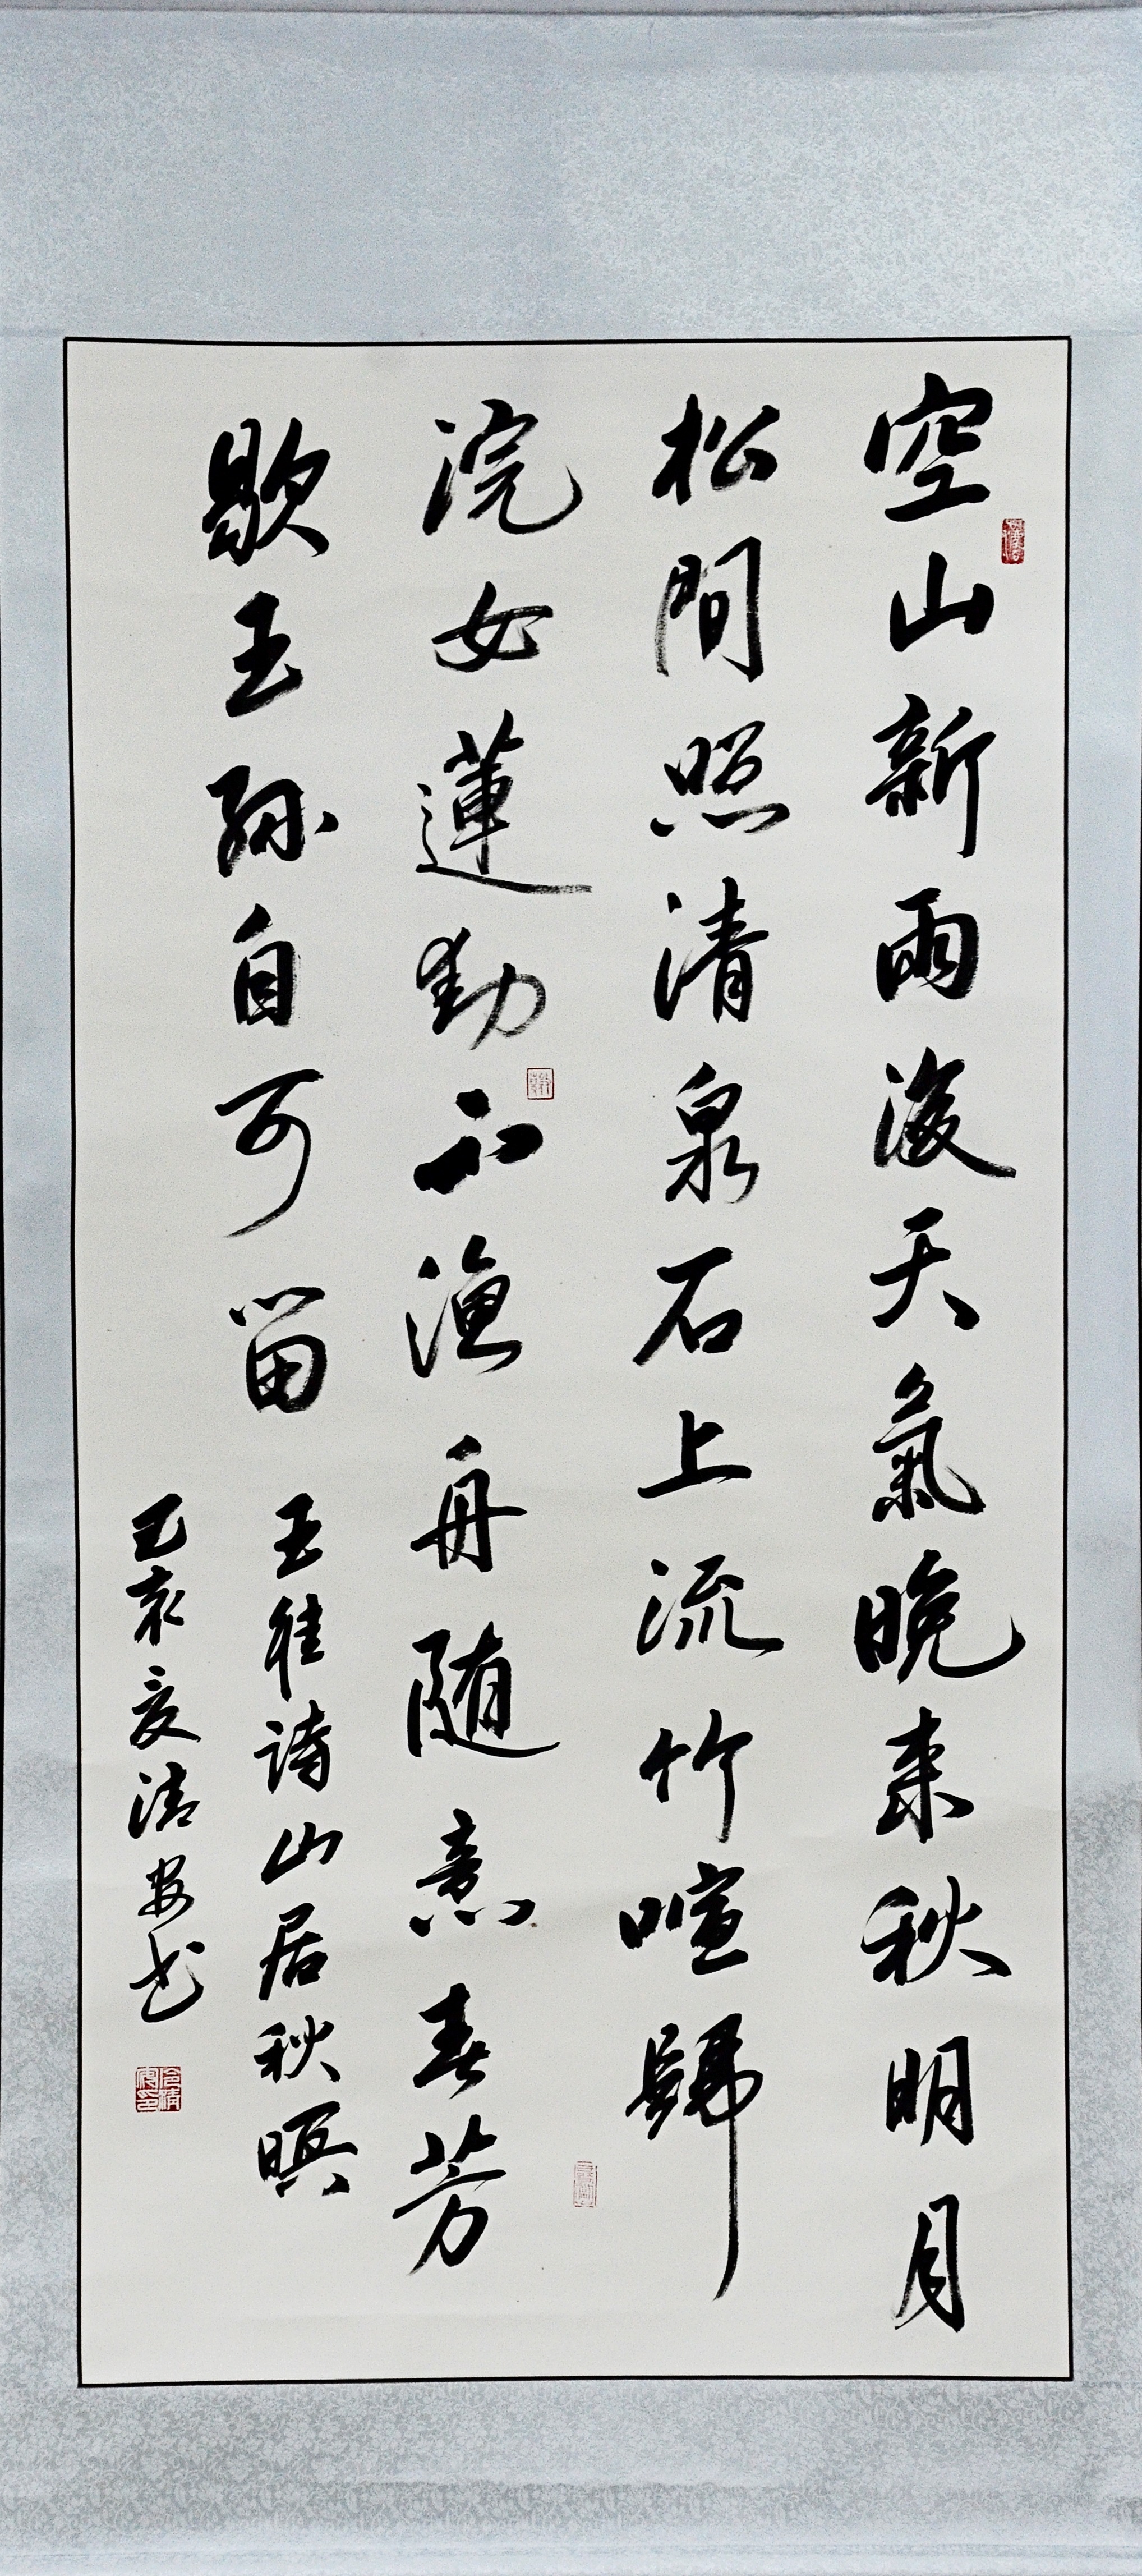 空山新雨後天氣晚来秋明月
松間照清泉石上流竹喧歸
浣女蓮動下漁舟随意春芳
歇王孫自可留
王維詩山居秋暝
己亥夏清安书